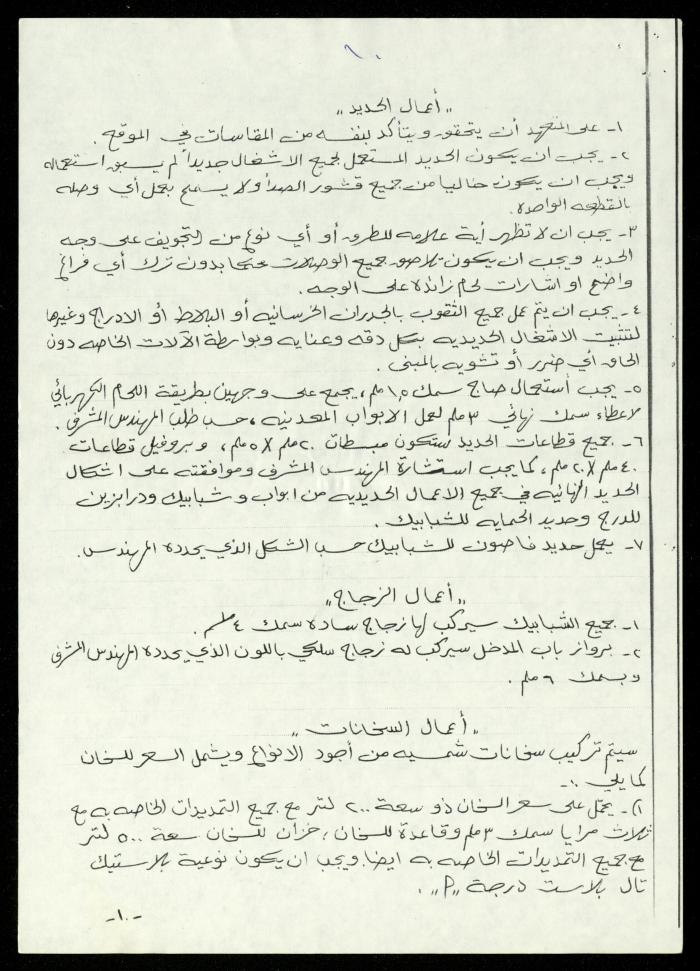 "أعمال الحديد"
١- على المتعهد أن يتحقق ويتأكد بنفسه من المقاسات في الموقع.
٢- يجب ان يكون الحديد المستعمل لجميع الاشغال جديداً لم يسبق استعماله
ويجب ان يكون خاليا من جميع قشور الصدأ ولا يسمح بعمل أي وصله
بالقطعه الواحدة.
٣- يجب ان لا تظهر أية علامه للطرق أو أي نوع من التجويف على وجه
الحديد ويجب ان يكون تلاصق جميع الوصلات محكما بدون ترك أي فراغ
واضح او اشارات لحام زائدة على الوجه.
٤- يجب ان يتم عمل جميع الثقوب بالجدران الخرسانيه أو البلاط أو الادراج وغيرها
لتثبيت الاشغال الحديديه بكل دقه وعنايه وبواسطة الآلات الخاصه دون
الحاق أي ضرر أو تشويه بالمبنى.
٥- يجب أستعمال صاج سمك ١,٥ ملم، يجمع على وجهين بطريقة اللحام الكهربائي
لاعطاء سمك نهائي ٣ ملم لعمل الابواب المعدنيه، حسب طلب المهندس المشرف.
٦- جميع قطاعات الحديد ستكون مبسطات ٢٠ملم X ٥ملم، وبروفيل قطاعات
٤٠ ملم X ٢٠ ملم، كما يجب استشارة المهندس المشرف وموافقته على اشكال
الحديد النهائيه في جميع الاعمال الحديديه من ابواب وشبابيك ودرابزين
للدرج وحديد الحمايه للشبابيك.
٧- يعمل حديد فاصون للشبابيك حسب الشكل الذي يحدده المهندس.
"أعمال الزجاج"
١- جميع الشبابيك سيركب لها زجاج ساده سمك ٤ ملم.
٢- برواز باب المدخل سيركب له زجاج سلكي باللون الذي يحدده المهندس المشرف
وبسمك ٦ ملم.
"أعمال السخانات"
سيتم تركيب سخانات شمسيه من أجود الانواع ويشمل السعر للسخان
كما يلي :-
١)- يعمل على سعر السخان ذو سعة ٢٠٠ لتر مع جميع التمديدات الخاصه به مع
ثلاث مرايا سمك ٣ ملم وقاعدة للسخان، خزان للسخان سعة ٥٠٠ لتر
مع جميع التمديدات الخاصه به ايضا. ويجب ان يكون نوعية بلاستيك
تال بلاست درجة "P".
-١٠-